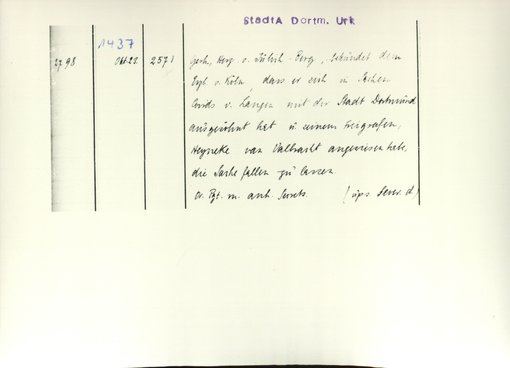 StadtA Dortm. Urk
1437
2798 Okt 22 2571 Gerh., Herzg. v. Jülich-Berg, bekundet dem
Erzb. v. Köln, dass er sich in Sachen
Cords v. Langen mit der Stadt Dortmund
ausgesöhnt hat u. seinem Freigrafen,
Heyneke van Valbracht angewiesen habe,
die Sache fallen zu lassen
Or. Pgt. m. anh. Secrets.